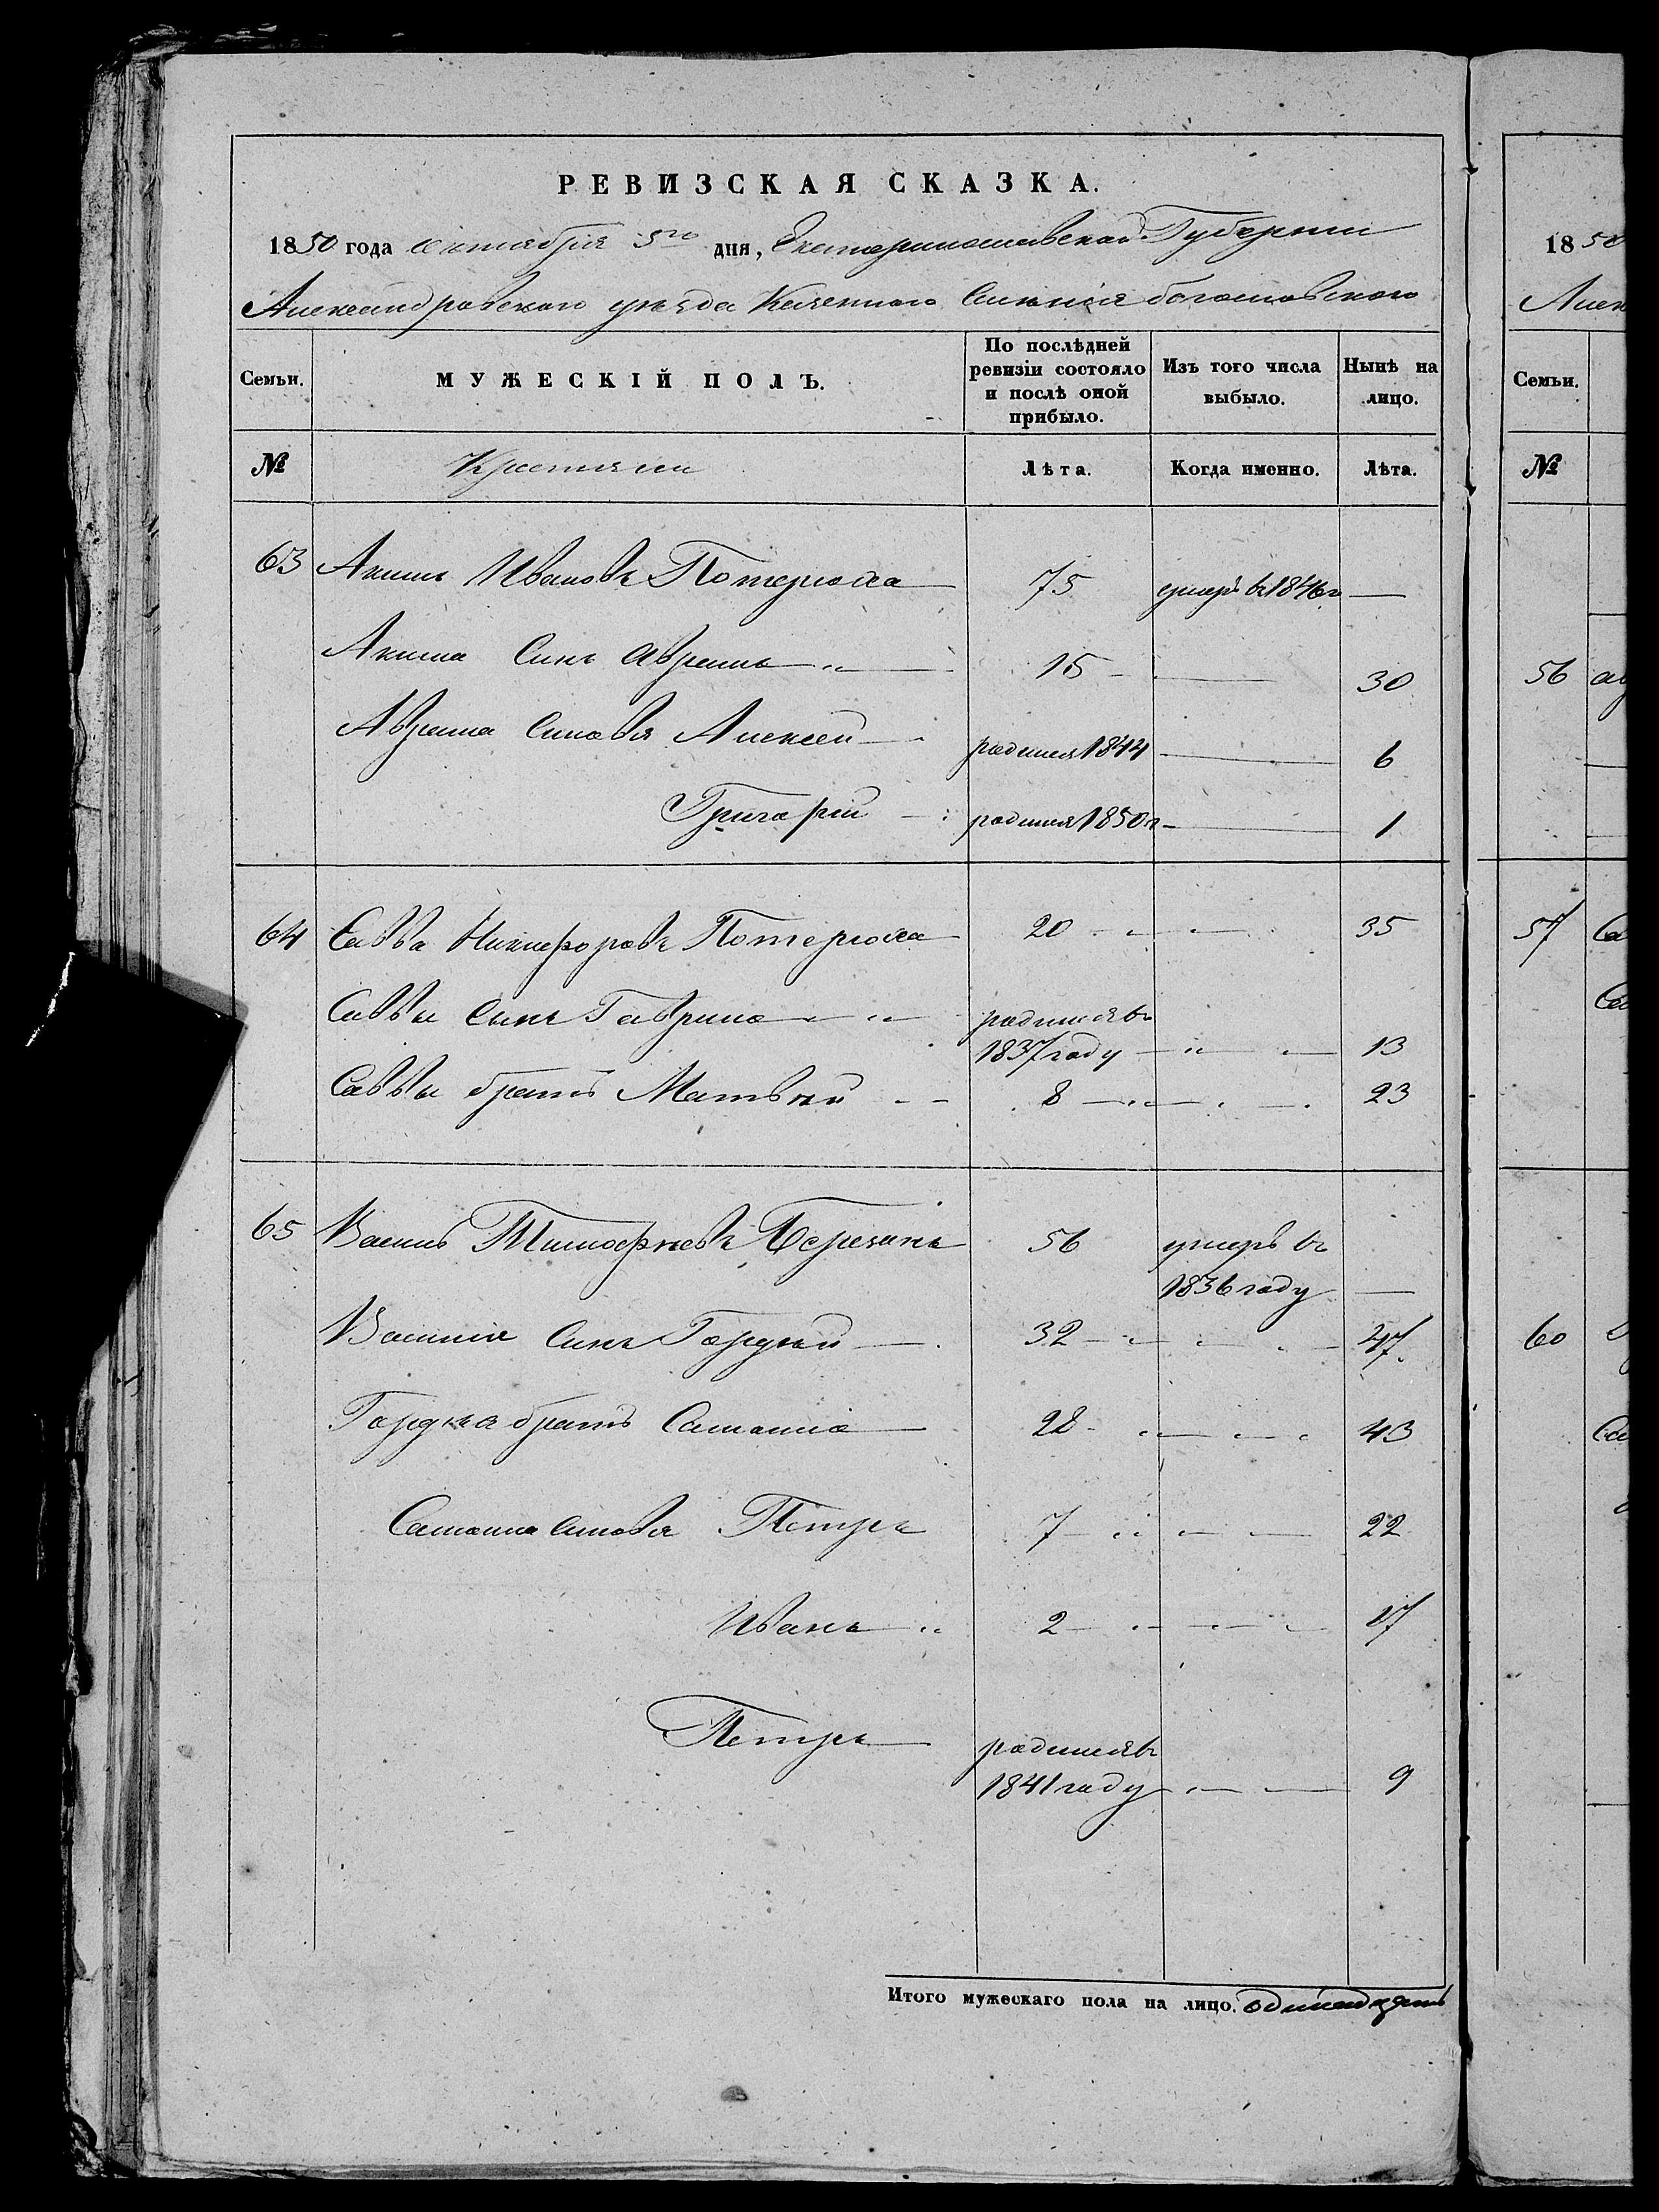 РЕВИЗСКАЯ СКАЗКА.
1850 года октября 5го дня, Екатеринославской Губернии
Александровского уезда Казенного Селения Богословского
Семьи.
МУЖЕСКІЙ ПОЛЪ.
По послѣдней ревизіи состояло и послѣ оной прибыло.
Изъ того числа выбыло.
Нынѣ на лицо.
№ Крестьяне Лѣта. Когда именно. Лѣта.
63 Акимъ Ивановъ Потерюха 75 умеръ въ 1846г —
Акима Сынъ Аврамъ 15 — 30
Аврама Сыновья Алексей родился 1844 — 6
Григорій родился 1850г — 1
64 Савва Никифоровъ Потерюха 20 35
Саввы Сынъ Гаврило родился въ
1837 году 13
Саввы братъ Матвѣй 8 23
65 Василь Тимофѣевъ 56 умеръ въ
1836 году —
Василия Сынъ Гордѣй 32 47
Гордѣя братъ 28 43
Сыновья Петръ 7 22
Иванъ 2 17
Петръ родился въ
1841 году 9
Итого мужескаго пола на лицо. одинадцать
18 50
Семьи.
№
56
57
60